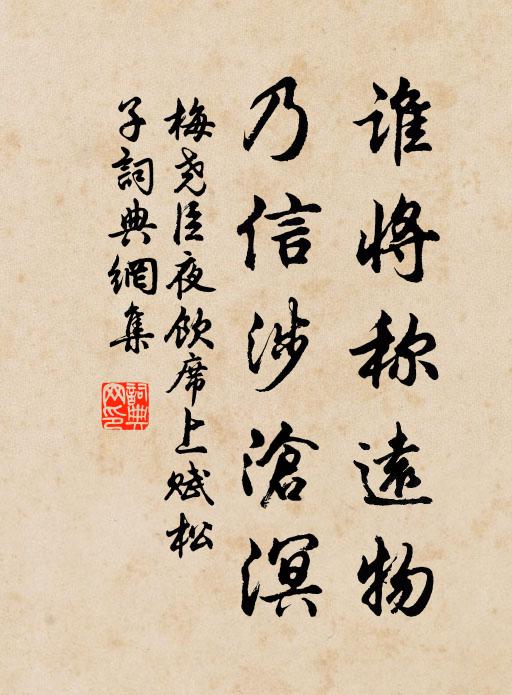 谁将称遠物
乃信涉滄溟
梅尧臣夜飲席上赋松
子詞典網集
詞典网印